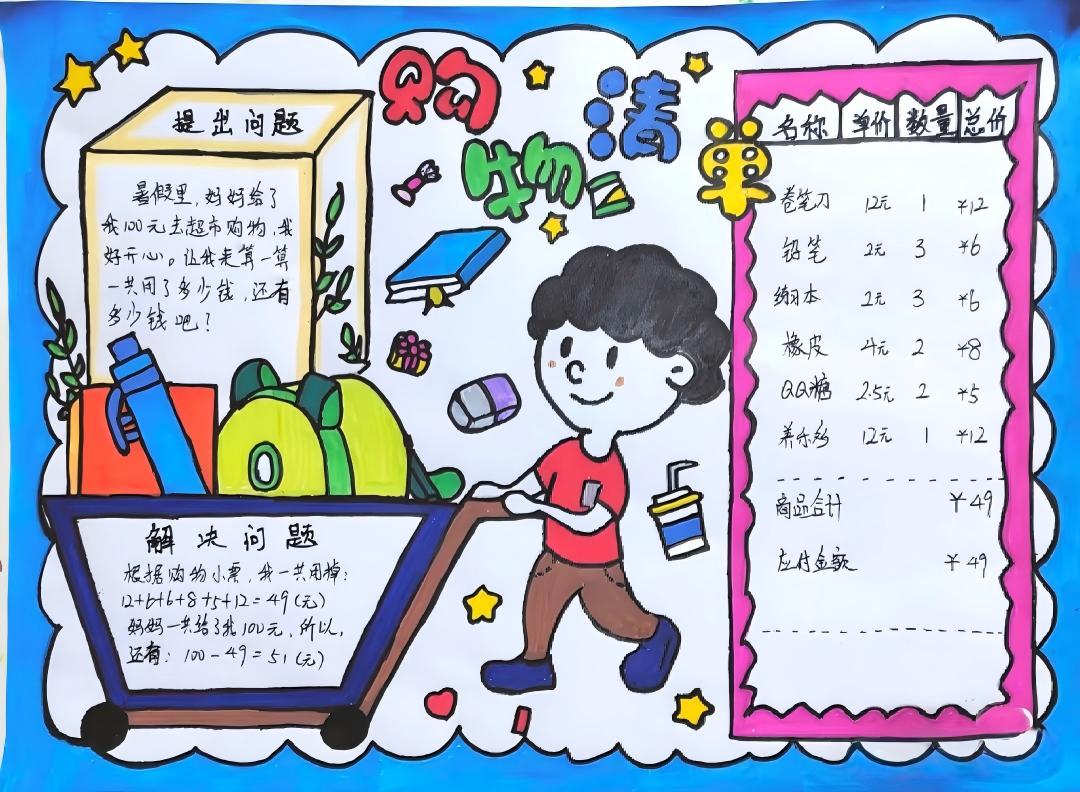 购物清单
提出问题
暑假里,妈妈给了
我100元去超市购物,我
好开心。让我来算一算
一共用了多少钱,还有
多少钱吧?
解决问题
根据购物小票,我一共用掉:
12+6+6+8+5+12=49(元)
妈妈一共给了我100元,所以,
还有:100-49=51(元)
名称 单价 数量 总价
卷笔刀 12元 1 ¥12
铅笔 2元 3 ¥6
绷本 2元 3 ¥6
橡皮 4元 2 ¥8
QQ糖 2.5元 2 ¥5
养乐多 12元 1 ¥12
商品合计 ¥49
应付金额 ¥49